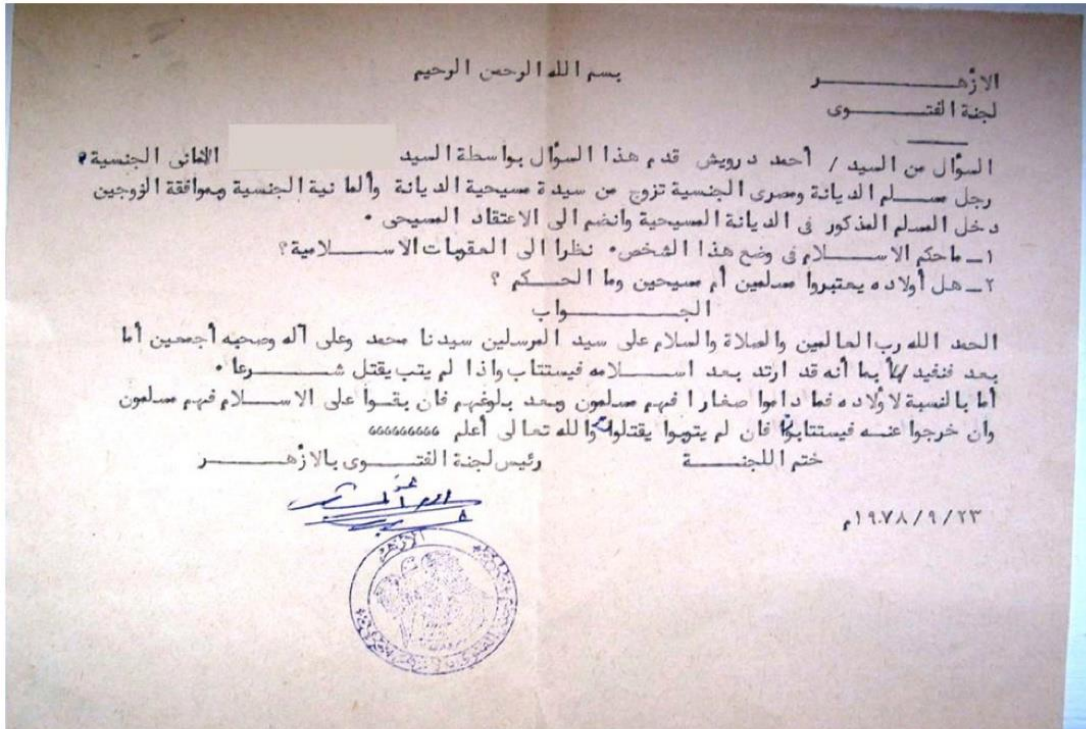 بسم الله الرحمن الرحيم
الازهــــــر
لجنة الفتــــوى
السؤال من السيد / أحمد درويش قدم هذا السؤال بواسطة السيد الالمانى الجنسية
رجل مســلم الديانة ومصرى الجنسية تزوج من سيدة مسيحية الديانة وألمانية الجنسية وبموافقة الزوجين
دخل المسلم المذكور فى الديانة المسيحية وانضم الى الاعتقاد المسيحى ٠
١ـ ماحكم الاســـلام فى وضع هذا الشخص٠ نظرا الى العقوبات الاســـلامية؟
٢ـ هل أولاده يعتبروا مسلمين أم مسيحين وما الحــكم ؟
الجـــــواب
الحمد الله رب العالمين والصلاة والسلام على سيد المرسلين سيدنا محمد وعلى آله وصحبه أجمعين أما
بعد فنفيد بأنه قد ارتد بعد اســلامه فيستتاب واذا لم يتب يقتل شــــرعا ٠
أما بالنسبة لاولاده فما داموا صغارا فهم مسلمون وبعد بلوغهم فان بقــوا على الاســلام فهم مسلمون
وان خرجوا عنــه فيستتابوا فان لم يتوبوا يقتلوا والله تعالى أعلم
ختم اللجنــــة
رئيس لجنة الفتــــوى بالازهــــــر
٢٣ / ٩ / ١٩٧٨م
الازهر